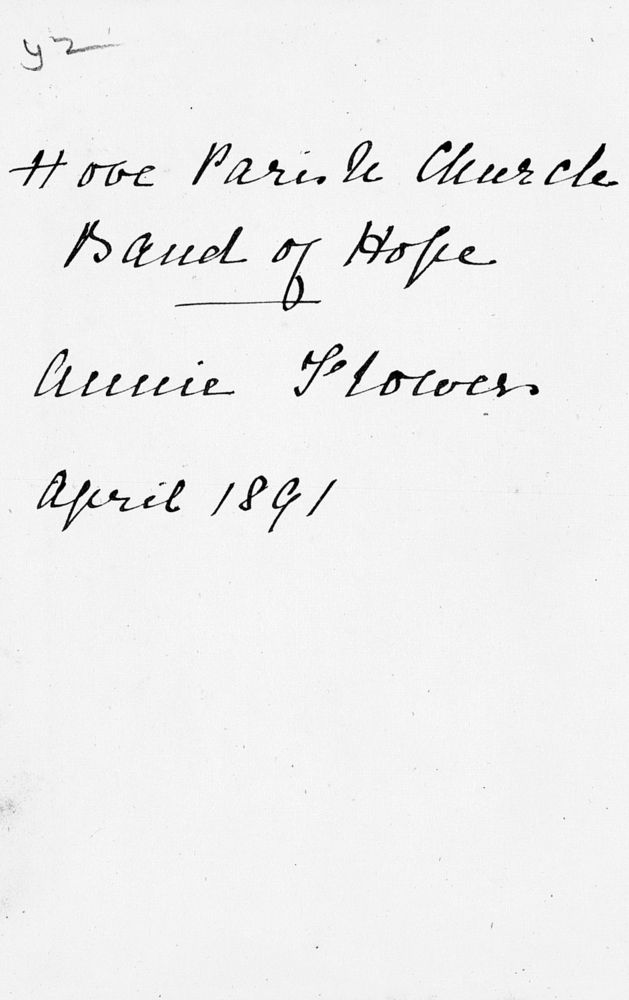 Hove Parish Church
Band of Hope
Annie Flowers
April 1891